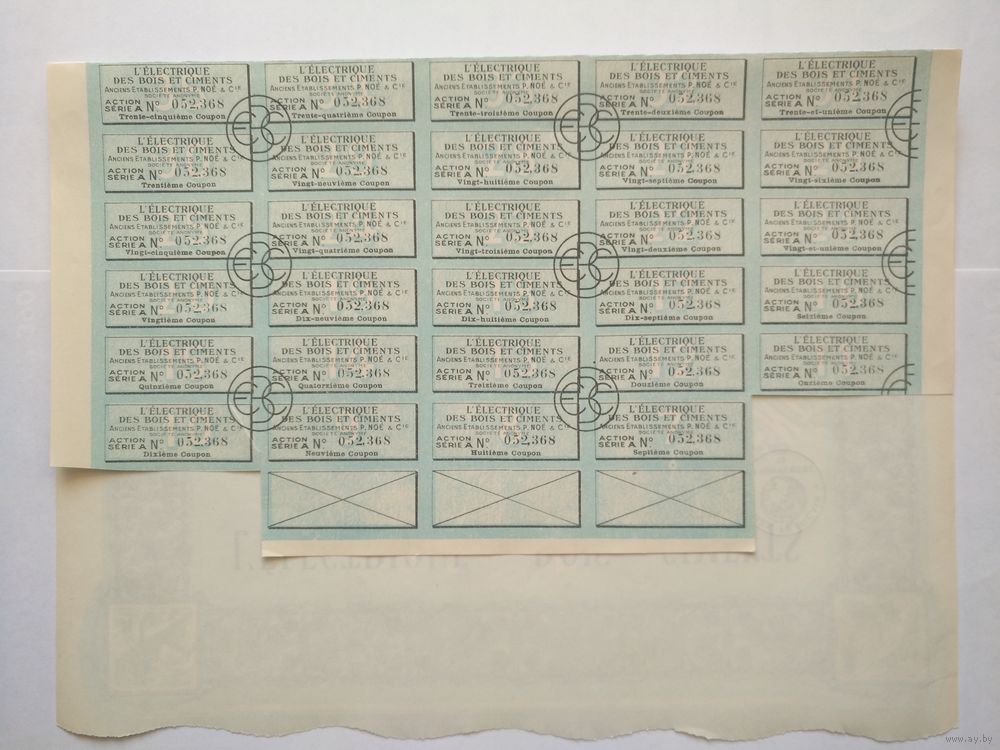 L'ÉLECTRIQUE
DES BOIS ET CIMENTS
ANCIENS ETABLISSEMENTS P. NOË & Cie
SOCIÉTÉ ANONYME
ACTION
SÉRIE A No 052,368
Trente-cinquième Coupon
L'ÉLECTRIQUE
DES BOIS ET CIMENTS
ANCIENS ETABLISSEMENTS P. NOË & Cie
SOCIÉTÉ ANONYME
ACTION
SÉRIE A No 052,368
Trente-quatrième Coupon
L'ÉLECTRIQUE
DES BOIS ET CIMENTS
ANCIENS ETABLISSEMENTS P. NOË & Cie
SOCIÉTÉ ANONYME
ACTION
SÉRIE A No 052,368
Trente-troisième Coupon
L'ÉLECTRIQUE
DES BOIS ET CIMENTS
ANCIENS ETABLISSEMENTS P. NOË & Cie
SOCIÉTÉ ANONYME
ACTION
SÉRIE A No 052,368
Trente-deuxième Coupon
L'ÉLECTRIQUE
DES BOIS ET CIMENTS
ANCIENS ETABLISSEMENTS P. NOË & Cie
SOCIÉTÉ ANONYME
ACTION
SÉRIE A No 052,368
Trente-et-unième Coupon
L'ÉLECTRIQUE
DES BOIS ET CIMENTS
ANCIENS ETABLISSEMENTS P. NOË & Cie
SOCIÉTÉ ANONYME
ACTION
SÉRIE A No 052,368
Trentième Coupon
L'ÉLECTRIQUE
DES BOIS ET CIMENTS
ANCIENS ETABLISSEMENTS P. NOË & Cie
SOCIÉTÉ ANONYME
ACTION
SÉRIE A No 052,368
Vingt-neuvième Coupon
L'ÉLECTRIQUE
DES BOIS ET CIMENTS
ANCIENS ETABLISSEMENTS P. NOË & Cie
SOCIÉTÉ ANONYME
ACTION
SÉRIE A No 052,368
Vingt-huitième Coupon
L'ÉLECTRIQUE
DES BOIS ET CIMENTS
ANCIENS ETABLISSEMENTS P. NOË & Cie
SOCIÉTÉ ANONYME
ACTION
SÉRIE A No 052,368
Vingt-septième Coupon
L'ÉLECTRIQUE
DES BOIS ET CIMENTS
ANCIENS ETABLISSEMENTS P. NOË & Cie
SOCIÉTÉ ANONYME
ACTION
SÉRIE A No 052,368
Vingt-sixième Coupon
L'ÉLECTRIQUE
DES BOIS ET CIMENTS
ANCIENS ETABLISSEMENTS P. NOË & Cie
SOCIÉTÉ ANONYME
ACTION
SÉRIE A No 052,368
Vingt-cinquième Coupon
L'ÉLECTRIQUE
DES BOIS ET CIMENTS
ANCIENS ETABLISSEMENTS P. NOË & Cie
SOCIÉTÉ ANONYME
ACTION
SÉRIE A No 052,368
Vingt-quatrième Coupon
L'ÉLECTRIQUE
DES BOIS ET CIMENTS
ANCIENS ETABLISSEMENTS P. NOË & Cie
SOCIÉTÉ ANONYME
ACTION
SÉRIE A No 052,368
Vingt-troisième Coupon
L'ÉLECTRIQUE
DES BOIS ET CIMENTS
ANCIENS ETABLISSEMENTS P. NOË & Cie
SOCIÉTÉ ANONYME
ACTION
SÉRIE A No 052,368
Vingt-deuxième Coupon
L'ÉLECTRIQUE
DES BOIS ET CIMENTS
ANCIENS ETABLISSEMENTS P. NOË & Cie
SOCIÉTÉ ANONYME
ACTION
SÉRIE A No 052,368
Vingt-et-unième Coupon
L'ÉLECTRIQUE
DES BOIS ET CIMENTS
ANCIENS ETABLISSEMENTS P. NOË & Cie
SOCIÉTÉ ANONYME
ACTION
SÉRIE A No 052,368
Vingtième Coupon
L'ÉLECTRIQUE
DES BOIS ET CIMENTS
ANCIENS ETABLISSEMENTS P. NOË & Cie
SOCIÉTÉ ANONYME
ACTION
SÉRIE A No 052,368
Dix-neuvième Coupon
L'ÉLECTRIQUE
DES BOIS ET CIMENTS
ANCIENS ETABLISSEMENTS P. NOË & Cie
SOCIÉTÉ ANONYME
ACTION
SÉRIE A No 052,368
Dix-huitième Coupon
L'ÉLECTRIQUE
DES BOIS ET CIMENTS
ANCIENS ETABLISSEMENTS P. NOË & Cie
SOCIÉTÉ ANONYME
ACTION
SÉRIE A No 052,368
Dix-septième Coupon
L'ÉLECTRIQUE
DES BOIS ET CIMENTS
ANCIENS ETABLISSEMENTS P. NOË & Cie
SOCIÉTÉ ANONYME
ACTION
SÉRIE A No 052,368
Seizième Coupon
L'ÉLECTRIQUE
DES BOIS ET CIMENTS
ANCIENS ETABLISSEMENTS P. NOË & Cie
SOCIÉTÉ ANONYME
ACTION
SÉRIE A No 052,368
Quinzième Coupon
L'ÉLECTRIQUE
DES BOIS ET CIMENTS
ANCIENS ETABLISSEMENTS P. NOË & Cie
SOCIÉTÉ ANONYME
ACTION
SÉRIE A No 052,368
Quatorzième Coupon
L'ÉLECTRIQUE
DES BOIS ET CIMENTS
ANCIENS ETABLISSEMENTS P. NOË & Cie
SOCIÉTÉ ANONYME
ACTION
SÉRIE A No 052,368
Treizième Coupon
L'ÉLECTRIQUE
DES BOIS ET CIMENTS
ANCIENS ETABLISSEMENTS P. NOË & Cie
SOCIÉTÉ ANONYME
ACTION
SÉRIE A No 052,368
Douzième Coupon
L'ÉLECTRIQUE
DES BOIS ET CIMENTS
ANCIENS ETABLISSEMENTS P. NOË & Cie
SOCIÉTÉ ANONYME
ACTION
SÉRIE A No 052,368
Onzième Coupon
L'ÉLECTRIQUE
DES BOIS ET CIMENTS
ANCIENS ETABLISSEMENTS P. NOË & Cie
SOCIÉTÉ ANONYME
ACTION
SÉRIE A No 052,368
Dixième Coupon
L'ÉLECTRIQUE
DES BOIS ET CIMENTS
ANCIENS ETABLISSEMENTS P. NOË & Cie
SOCIÉTÉ ANONYME
ACTION
SÉRIE A No 052,368
Neuvième Coupon
L'ÉLECTRIQUE
DES BOIS ET CIMENTS
ANCIENS ETABLISSEMENTS P. NOË & Cie
SOCIÉTÉ ANONYME
ACTION
SÉRIE A No 052,368
Huitième Coupon
L'ÉLECTRIQUE
DES BOIS ET CIMENTS
ANCIENS ETABLISSEMENTS P. NOË & Cie
SOCIÉTÉ ANONYME
ACTION
SÉRIE A No 052,368
Septième Coupon
www.ay.by